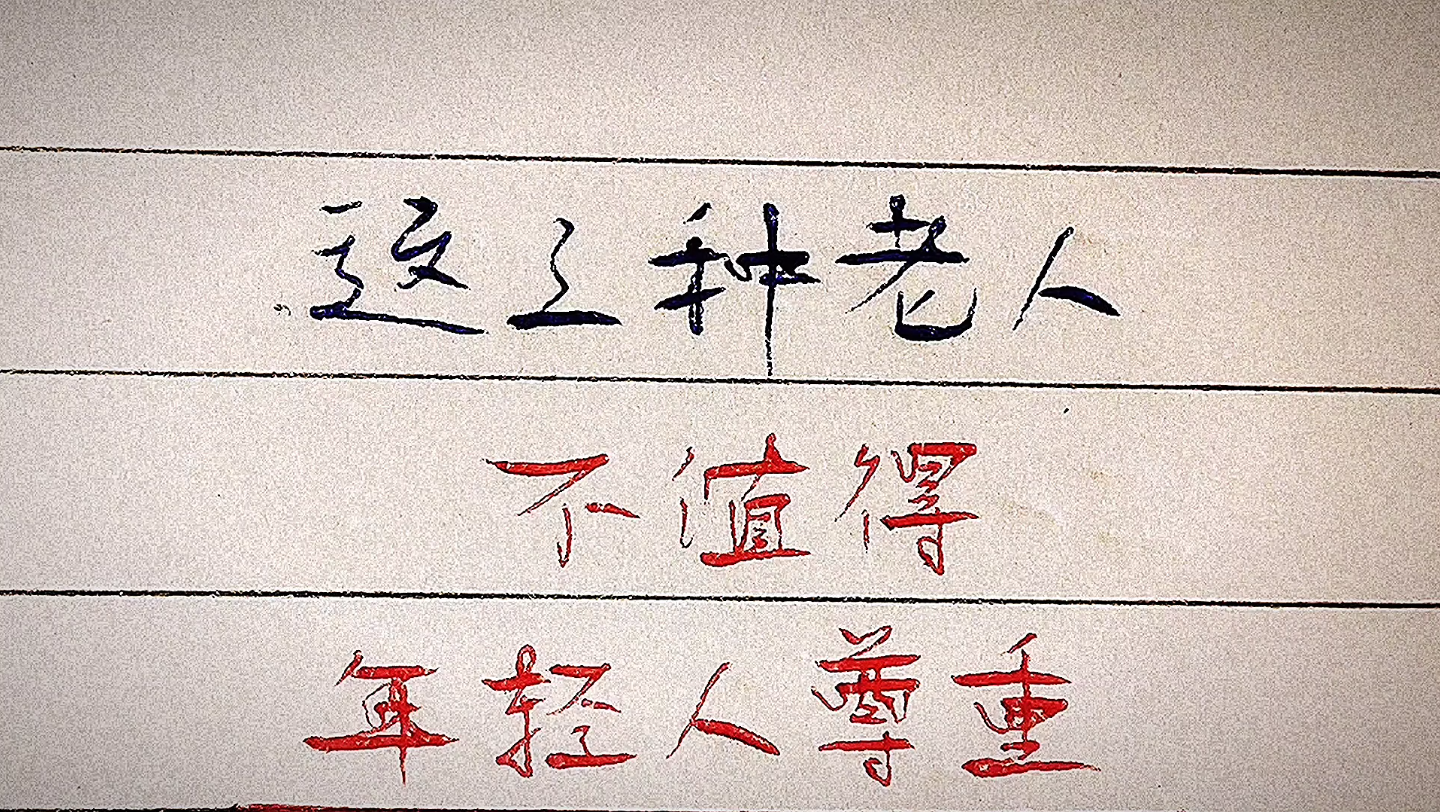 这三种老人
不值得
年轻人尊重